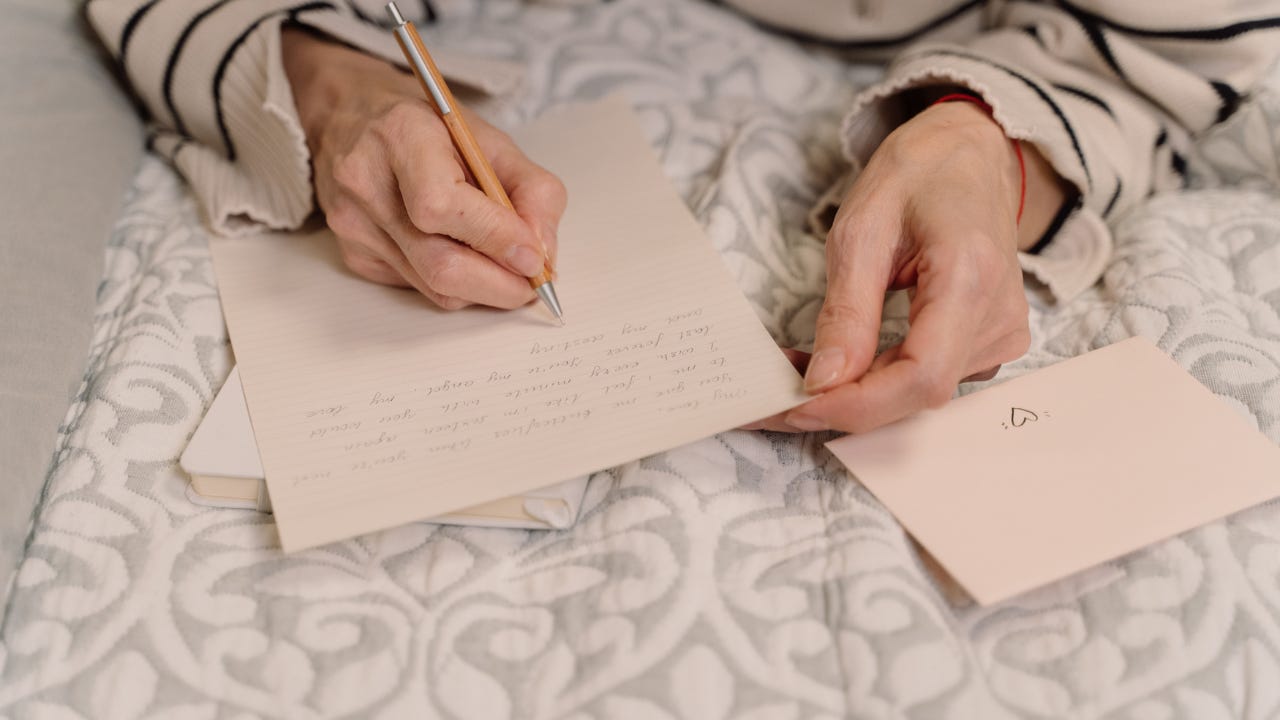 My love,
You give me butterflies When you're next
to me i feel like i'm sixteen again
I wish every minute with you would
last forever You're my angel. my love
and my destiny